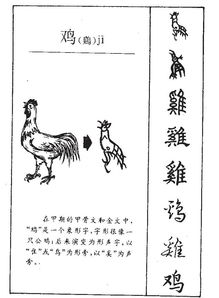 鸡(鷄)jī
在早期的甲骨文和金文中，
“鸡”是一个象形字，字形很像一
只公鸡；后来演变为形声字，以
“隹”或“鸟”为形旁，以“奚”为声
旁。
雞
雞
雞
雞
鸡